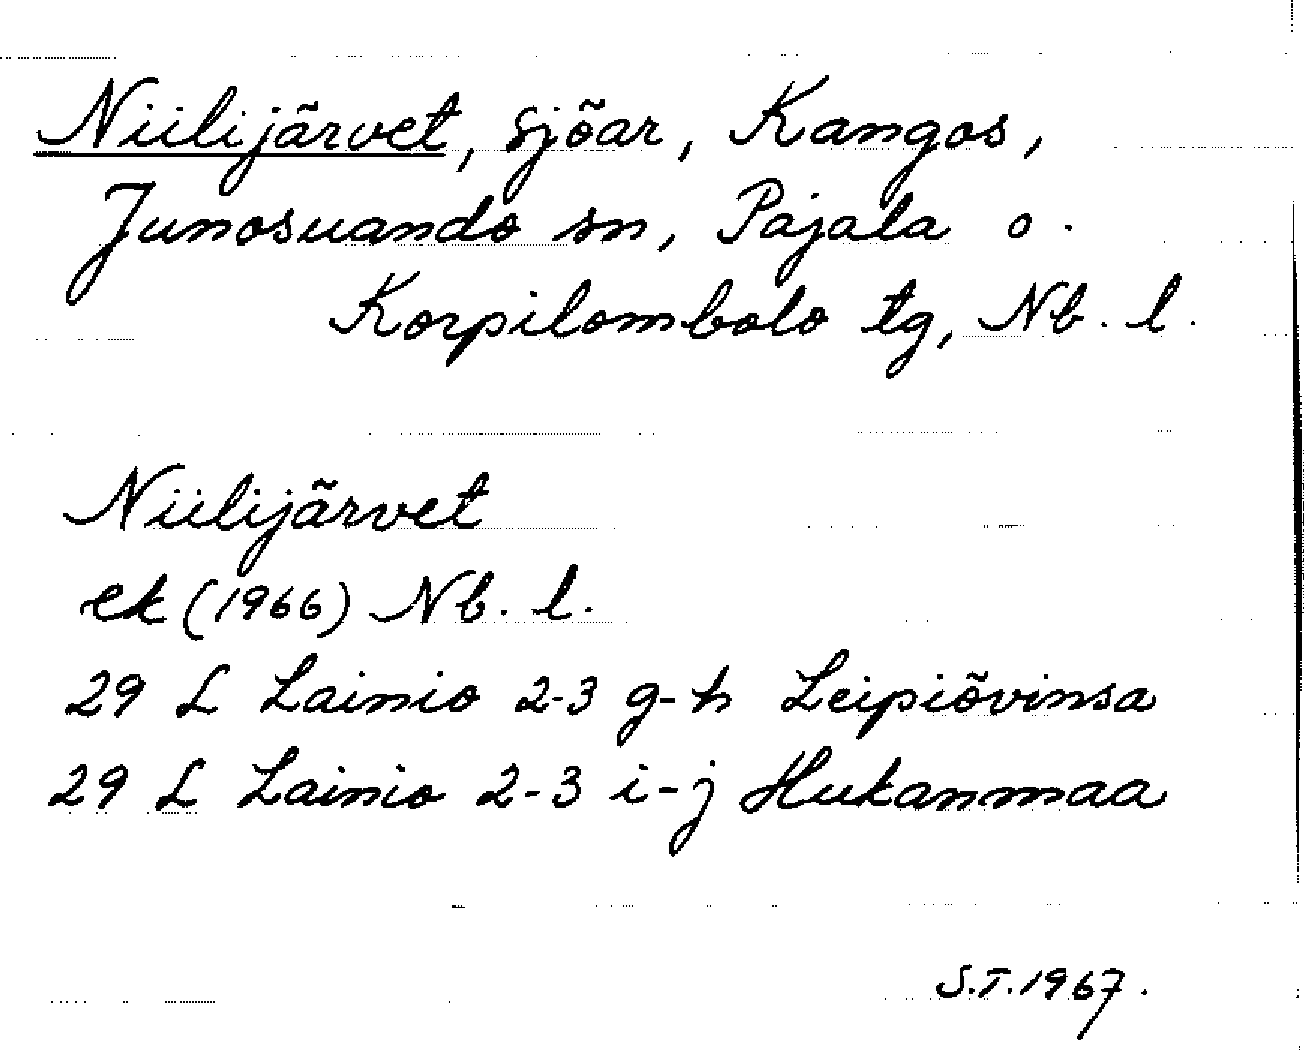 Niilijärvet, sjöar, Kangos,
Junosuando sn, Pajala o.
Korpilombolo tg, Nb. l.
Niilijärvet
ek (1966) Nb. l.
29 L Lainio 2-3 g-h Leipiövinsa
29 L Lainio 2-3 i-j Hukanmaa
S.T. 1967.